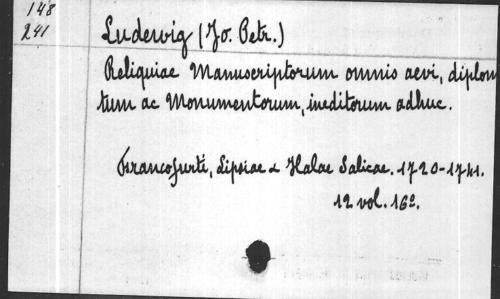 148
241
Ludewig (Jo. Petr.)
Reliquiae Manuscriptorum omnis aevi, diplom
tum ac Monumentorum, ineditorum adhuc.
Francofurti, Lipsiae & Halae Salicae. 1720-1741.
12 vol. 16º.